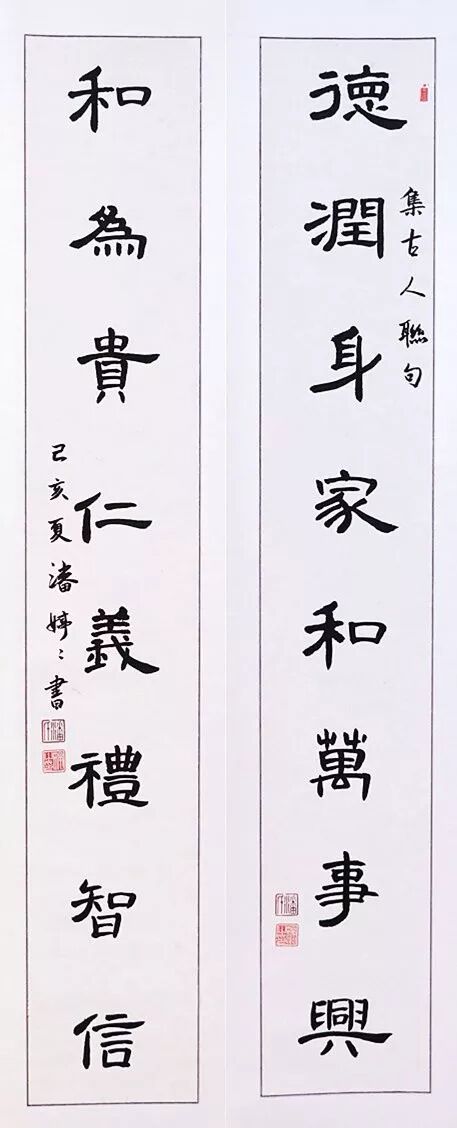 德潤身家和萬事興
集古人聯句
和為貴仁義禮智信
己亥夏潘婷〻書